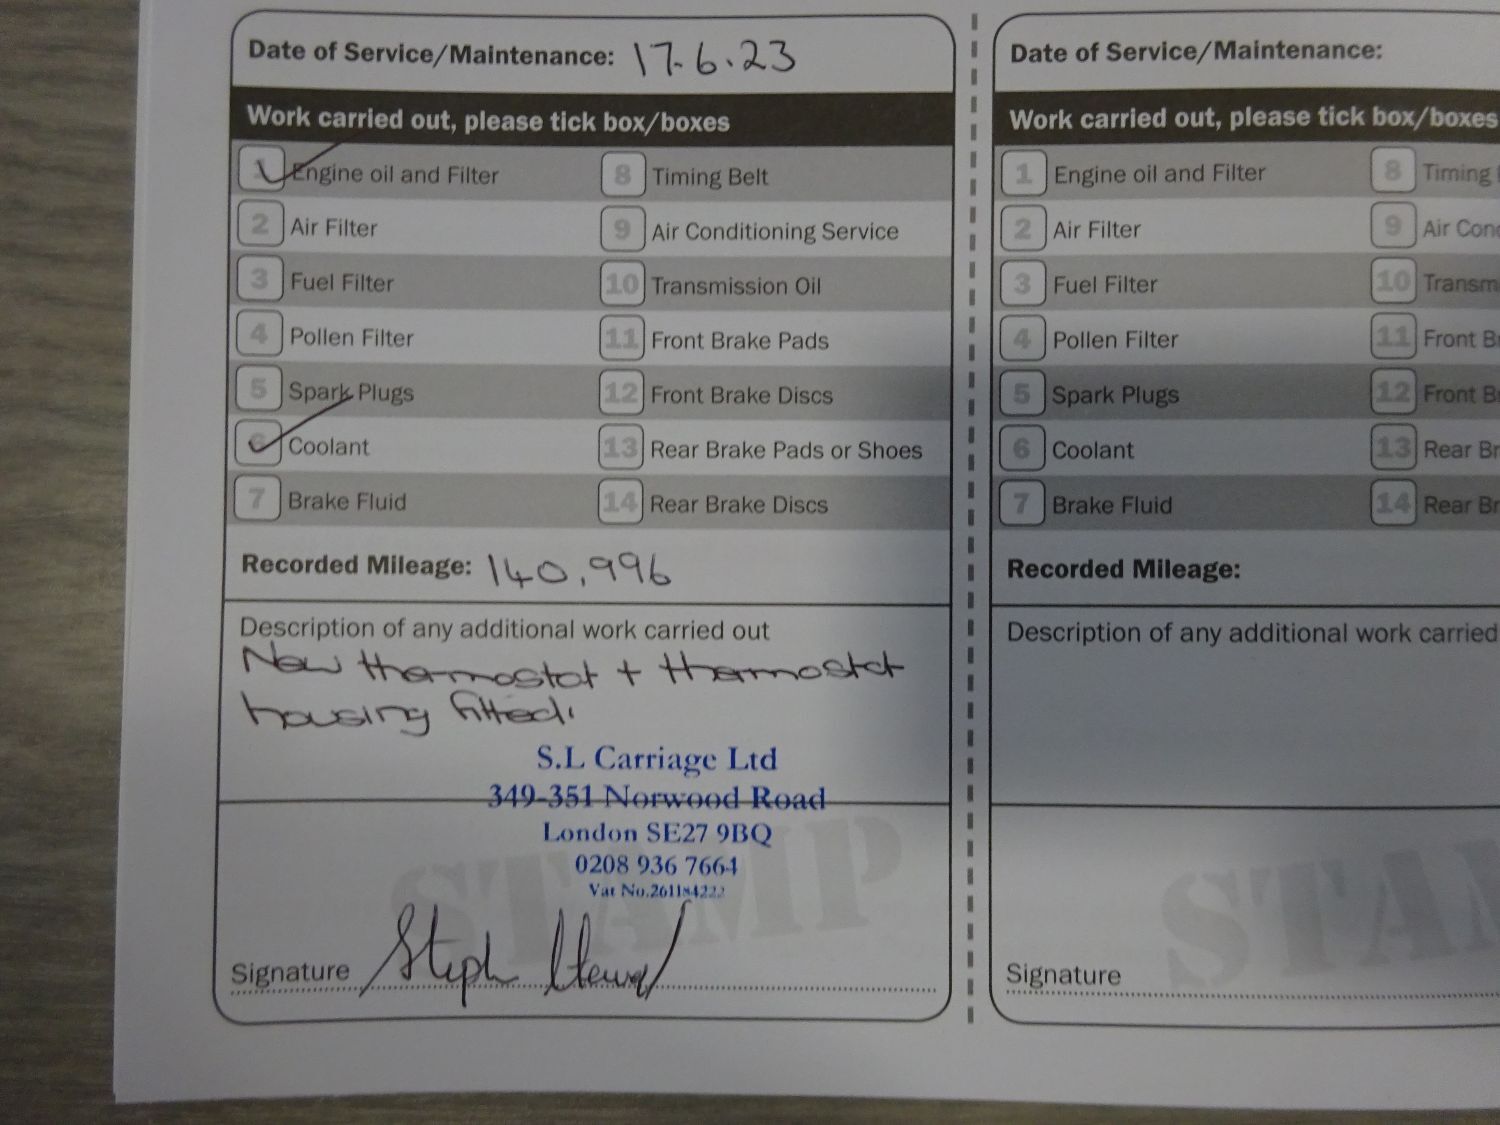 Date of Service/Maintenance: 17.6.23
Work carried out, please tick box/boxes
1 Engine oil and Filter
2 Air Filter
3 Fuel Filter
4 Pollen Filter
5 Spark Plugs
6 Coolant
7 Brake Fluid
8 Timing Belt
9 Air Conditioning Service
10 Transmission Oil
11 Front Brake Pads
12 Front Brake Discs
13 Rear Brake Pads or Shoes
14 Rear Brake Discs
Recorded Mileage: 140,996
Description of any additional work carried out
New thermostat + thermostat
housing fitted.
S.L Carriage Ltd
349-351 Norwood Road
London SE27 9BQ
0208 936 7664
Vat No.261184222
STAMP
Signature Steph
Date of Service/Maintenance:
Work carried out, please tick box/boxes
1 Engine oil and Filter
2 Air Filter
3 Fuel Filter
4 Pollen Filter
5 Spark Plugs
6 Coolant
7 Brake Fluid
8 Timing
9 Air Cond
10 Transm
11 Front B
12 Front B
13 Rear Br
14 Rear Br
Recorded Mileage:
Description of any additional work carried
STAM
Signature